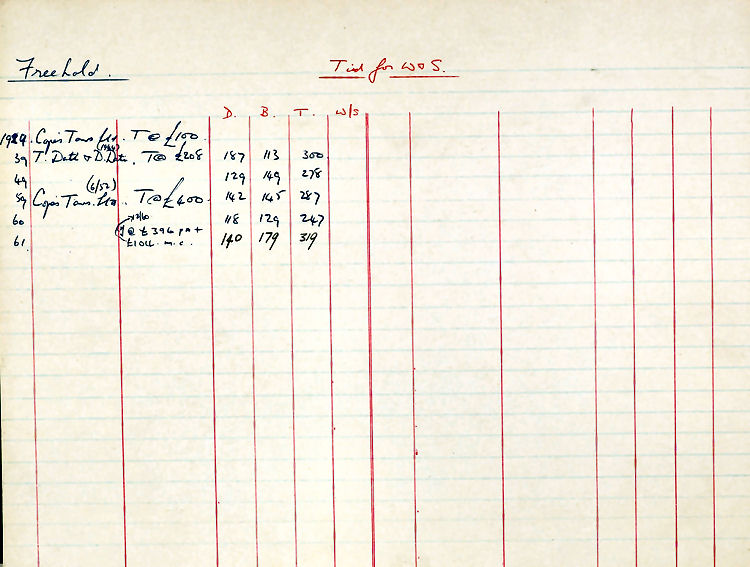 Freehold. Tied for W & S.
D. B. T. W/S
1929. Copes Tavs. Ltd. T @ £100.
(1934)
39 T. Dath & D. Date. T @ £208 187 113 300
49 129 149 278
(6/52)
59 Copes Tavs. Ltd. T @ £400. 142 145 287
60 118 129 247
@ £396 pa +
61. £104 m.c. 140 179 319